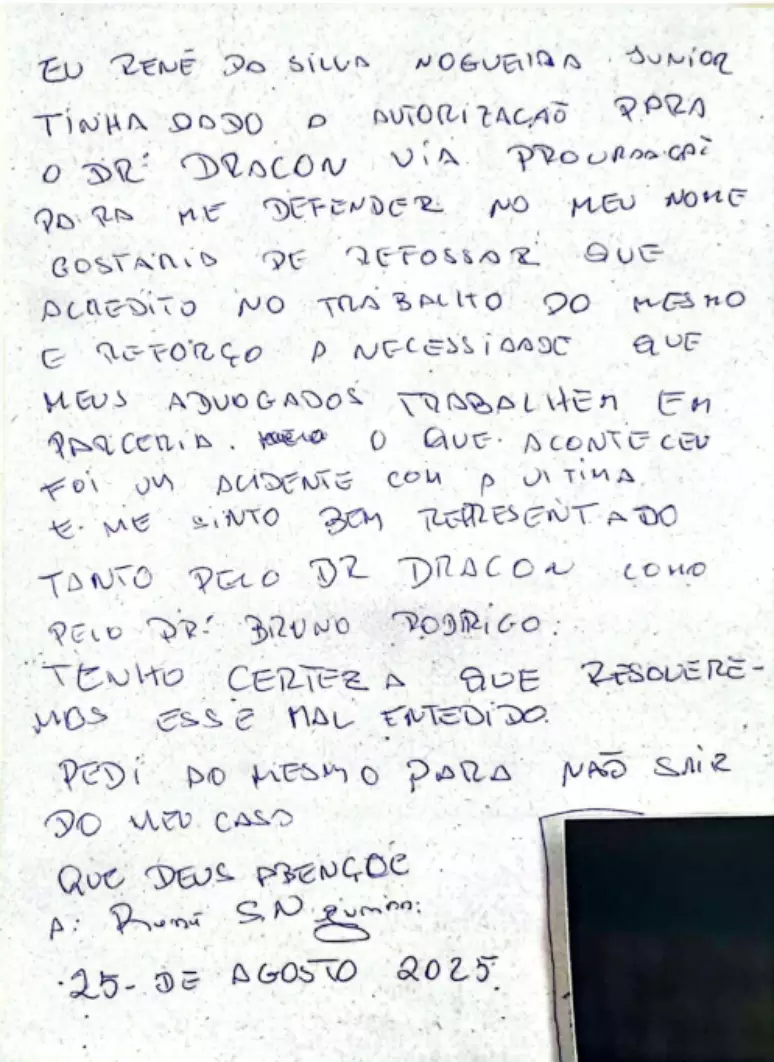 EU RENÉ DA SILVA NOGUEIRA JUNIOR
TINHA DADO A AUTORIZAÇÃO PARA
O DR. DRACON VIA PROCURAÇÃ
PARA ME DEFENDER NO MEU NOME
GOSTARIA DE REFOSSAR QUE
ACREDITO NO TRABALHO DO MESMO
E REFORÇO A NECESSIDADE QUE
MEUS ADVOGADOS TRABALHEM EM
PARCERIA. O QUE ACONTECEU
FOI UM ACIDENTE COM A VITIMA
E ME SINTO BEM REPRESENTADO
TANTO PELO DR DRACON COMO
PELO DR. BRUNO RODRIGO.
TENHO CERTEZA QUE RESOLVERE-
MOS ESSE MAL ENTEDIDO.
PEDI AO MESMO PARA NÃO SAIR
DO MEU CASO
QUE DEUS ABENÇOE
A: S N
25- DE AGOSTO 2025